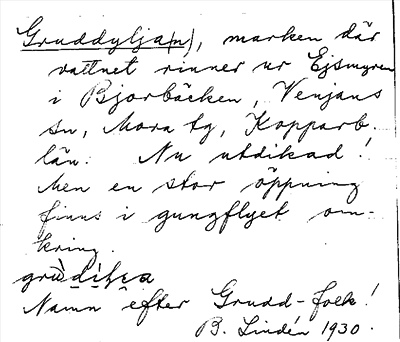 Gruddylja(n), marken där
vattnet rinner ur Ejsmyren
i Bjorbäcken, Venjans
sn, Mora tg, Kopparb.
län. Nu utdikad!
Men en stor öppning
finns i gungflyet om-
kring.
Namn efter Grudd-folk!
B. Lindén 1930.